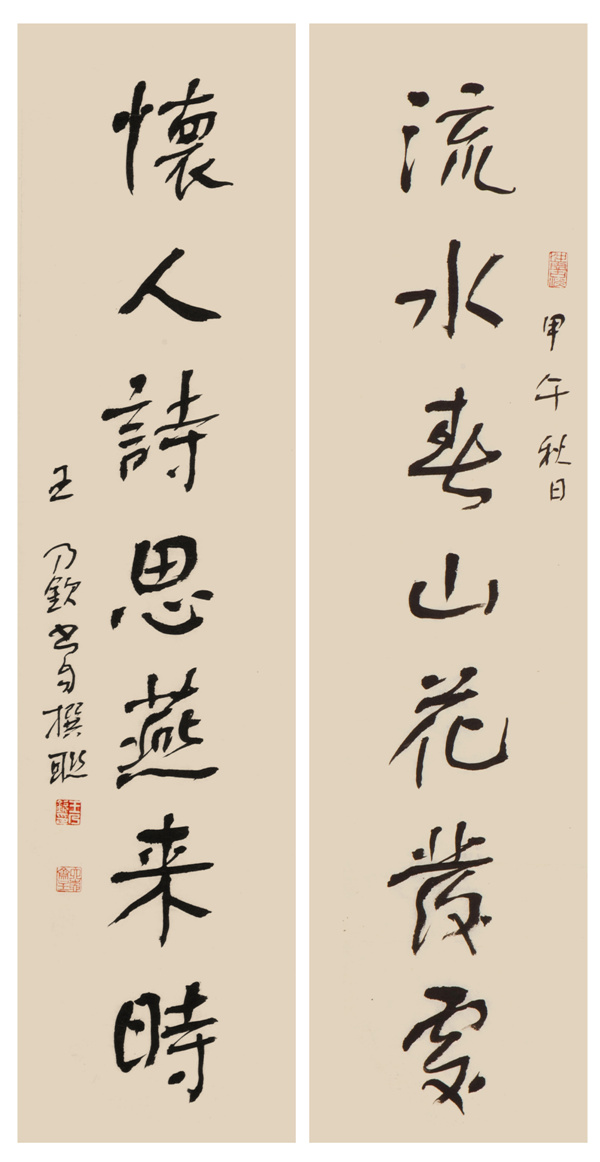 流水春山花發處
甲午秋日
懷人詩思燕来時
王乃欽書自撰聯